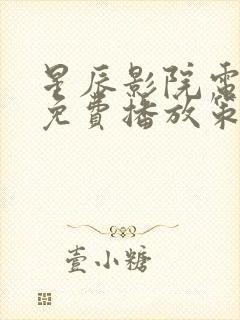 星辰影院電
免費播放策
壹小糖